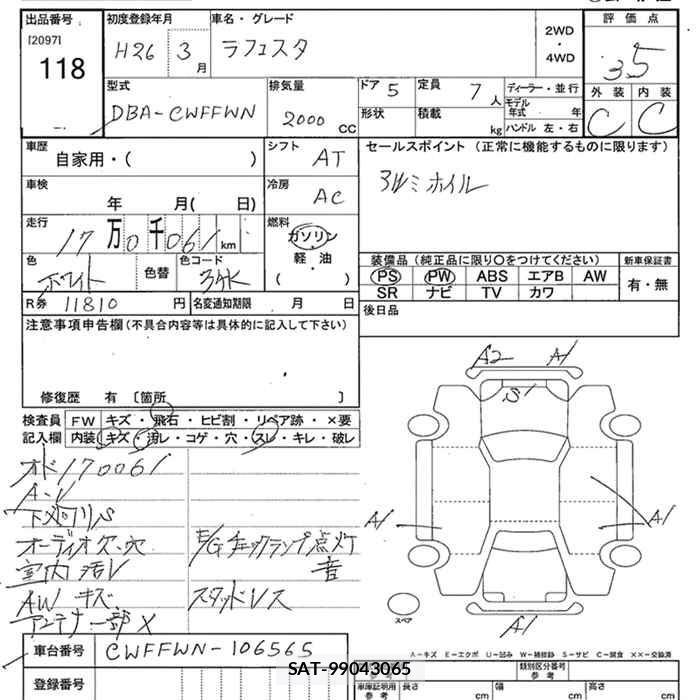 出品番号 初度登録年月 車名・グレード 評価点
[2097]
118
H26 3月 ラフェスタ 2WD・4WD 3.5
型式 排気量 ドア 5 定員 7人 ディーラー・並行 外装 内装
DBA-CWFFWN 2000 CC 形状 積載 kg モデル年式 年 C C
ハンドル 左・右
車歴 シフト AT セールスポイント (正常に機能するものに限ります)
自家用・( )
車検 冷房 AC
年 月( 日)
走行 燃料
17万0千061km ガソリン
軽・油
( ・ )
色 色替 色コード
ホワイト 34K
装備品(純正品に限り〇をつけてください) 新車保証書
PS PW ABS エアB AW 有・無
SR ナビ TV カワ
R券 11810 円 名変通知期限 月 日
後日品
注意事項申告欄(不具合内容等は具体的に記入して下さい)
修復歴 有 〔箇所 〕
検査員記入欄 FW キズ・飛石・ヒビ割・リペア跡・×要
内装 キズ・汚レ・コゲ・穴・スレ・キレ・破レ
A2 A1
S1
オド170061
下メクリS
オーディオ欠.穴 E/Gチェックランプ点灯
音
室内汚レ
AW キズ スタッドレス
アンテナ一部X
A1 A1
スペア
A1
車台番号 CWFFWN-106565
登録番号
A-キズ E-エクボ U-凹み W-補修跡 S-サビ C-腐食 XX-交換済
類別区分番号
車庫証明用参考 長さ cm 幅 cm 高さ cm
SAT-99043065